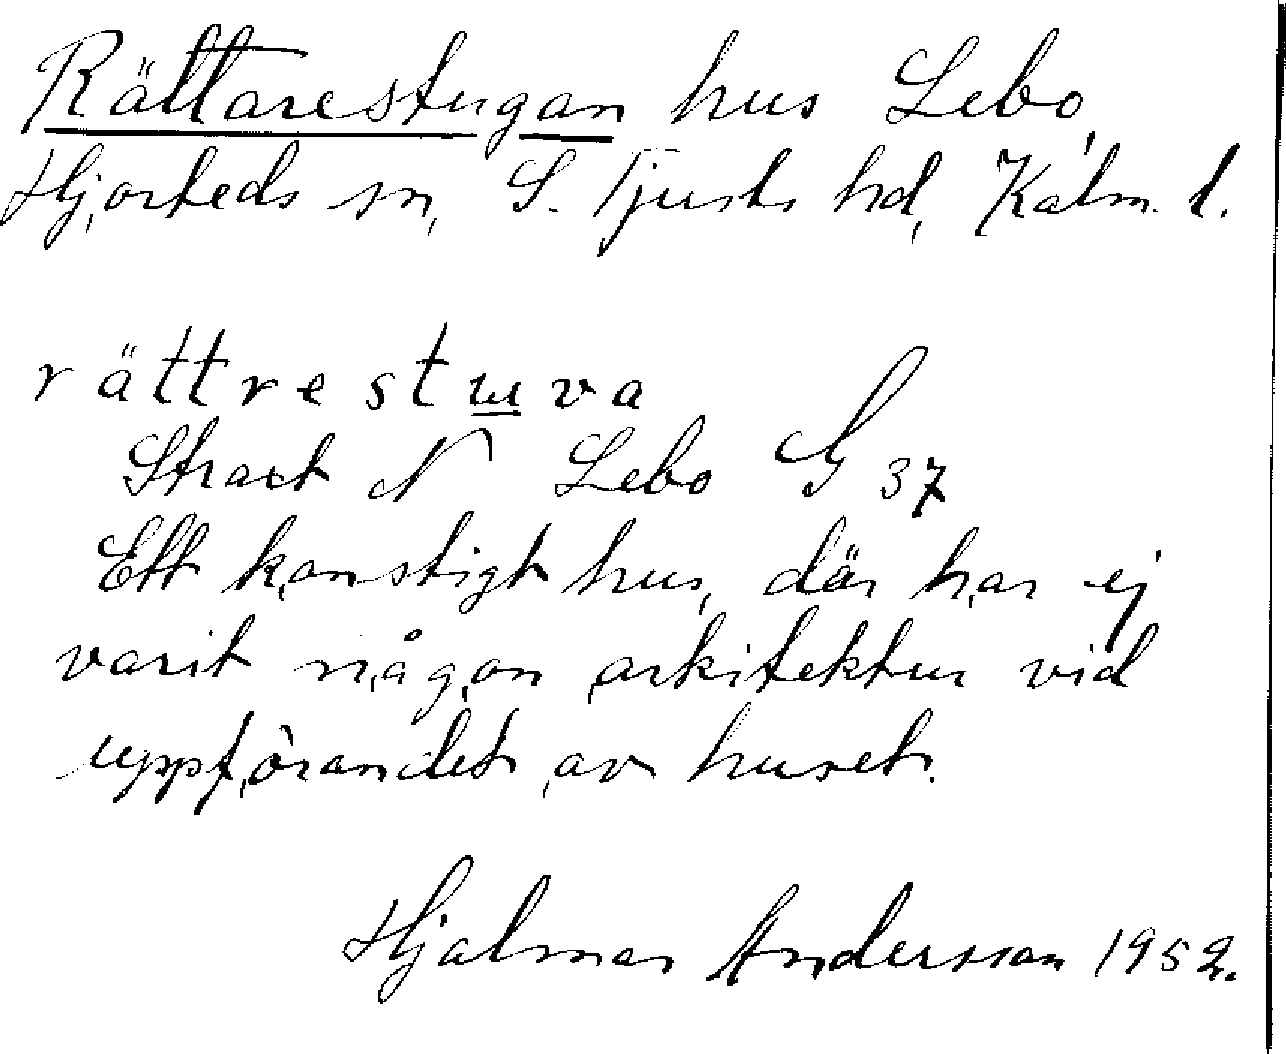 Rättarestugan hus Lebo,
Hjorteds sn, S. Tjusts hd, Kalm. l.
rättrestuva
Strax N Lebo G 37
Ett konstigt hus, där har ej
varit någon arkitektur vid
uppförandet av huset.
Hjalmar Andersson 1952.